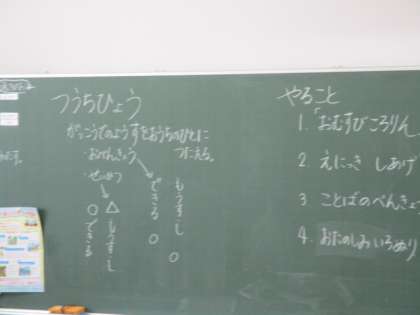 つうちひょう
がっこうでのようすをおうちのひとに
つたえる。
・おべんきょう
・せいかつ
できる ○
もうすこし ○
○ できる
△ もうすこし
やること
1. 「おむすびころりん
2. えにっき しあげ
3 ことばのべんきょ
4. おたのしみ いろぬり